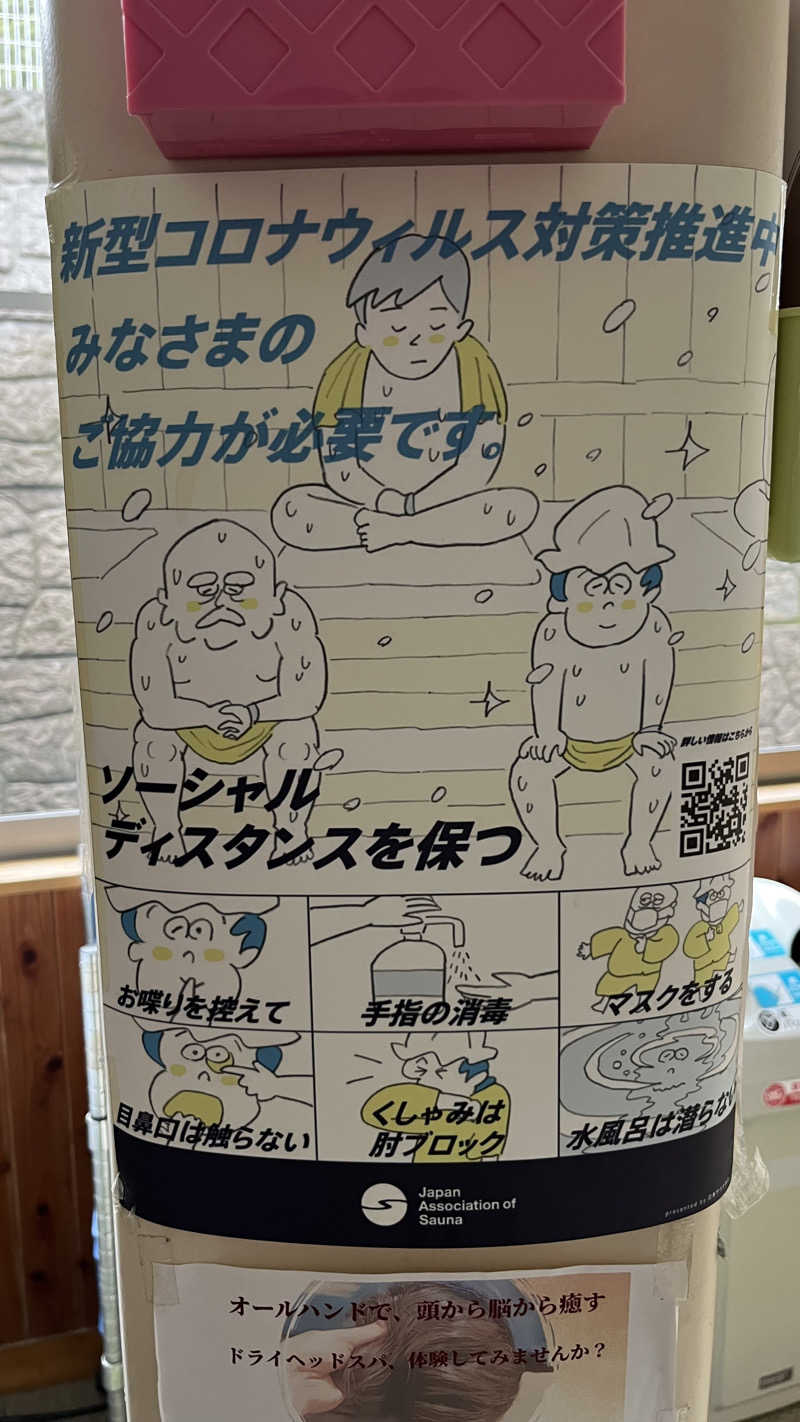 新型コロナウィルス対策推進中
みなさまの
ご協力が必要です。
詳しい情報はこちらから
ソーシャル
ディスタンスを保つ
お喋りを控えて
手指の消毒
マスクをする
目鼻口は触らない
くしゃみは
肘ブロック
水風呂は潜らない
Japan
Association of
Sauna
presented by
オールハンドで、頭から脳から癒す
ドライヘッドスパ、体験してみませんか？